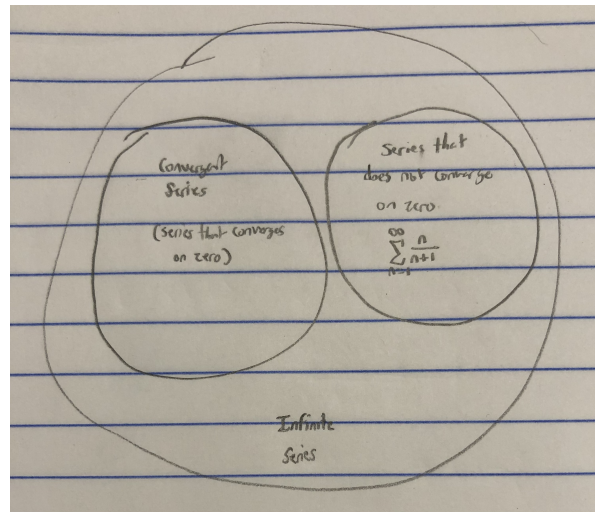 Convergent
Series
(series that converges
on zero)
Series that
does not converge
on zero
∞
∑ n/n+1
n=1
Infinite
Series